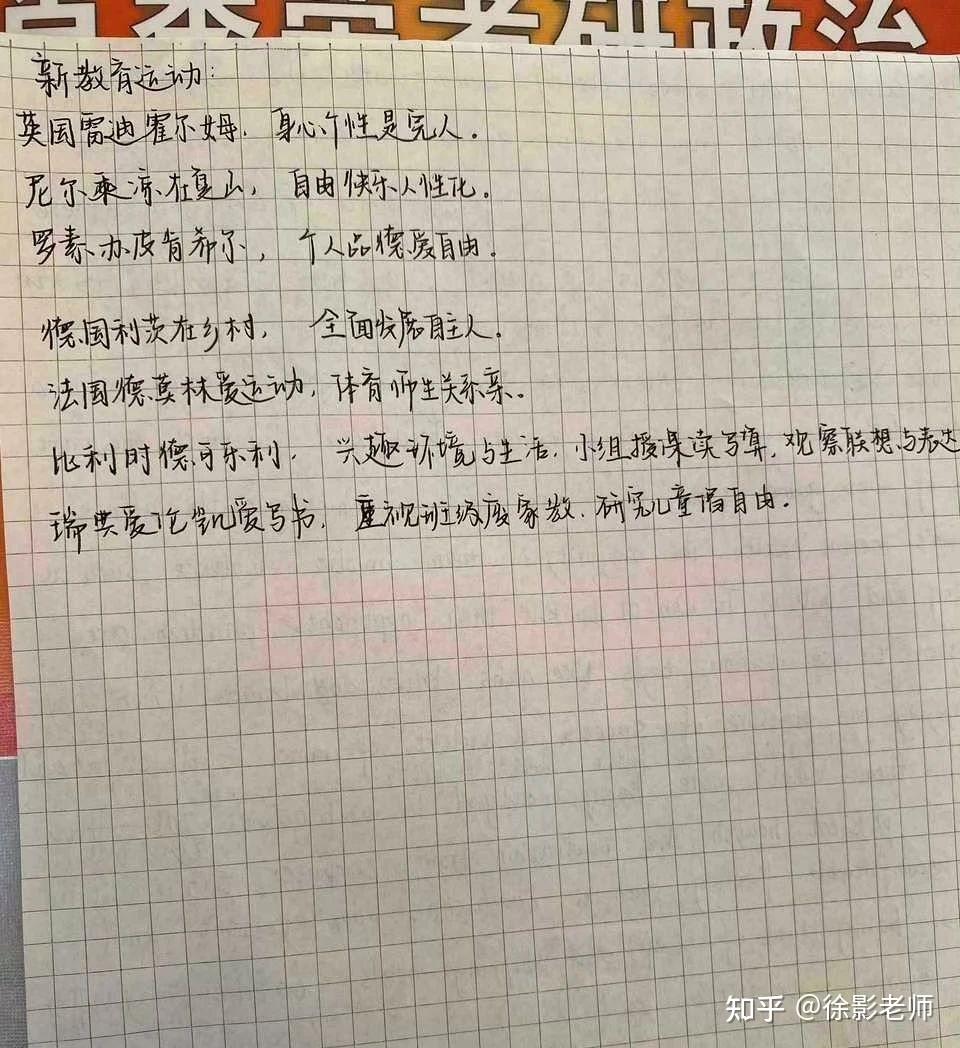 考研政治
新教育运动:
英国雷迪霍尔姆,身心个性是完人。
尼尔乘凉在夏山,自由快乐人性化。
罗素办皮肯希尔,个人品德爱自由。
德国利茨在乡村,全面发展自主人。
法国德莫林爱运动,体育师生关系亲。
比利时德可乐利,兴趣环境与生活,小组授课读写算,观察联想与表达
瑞典爱伦凯爱写书,重视班级废家教,研究儿童倡自由。
知乎 @徐影老师